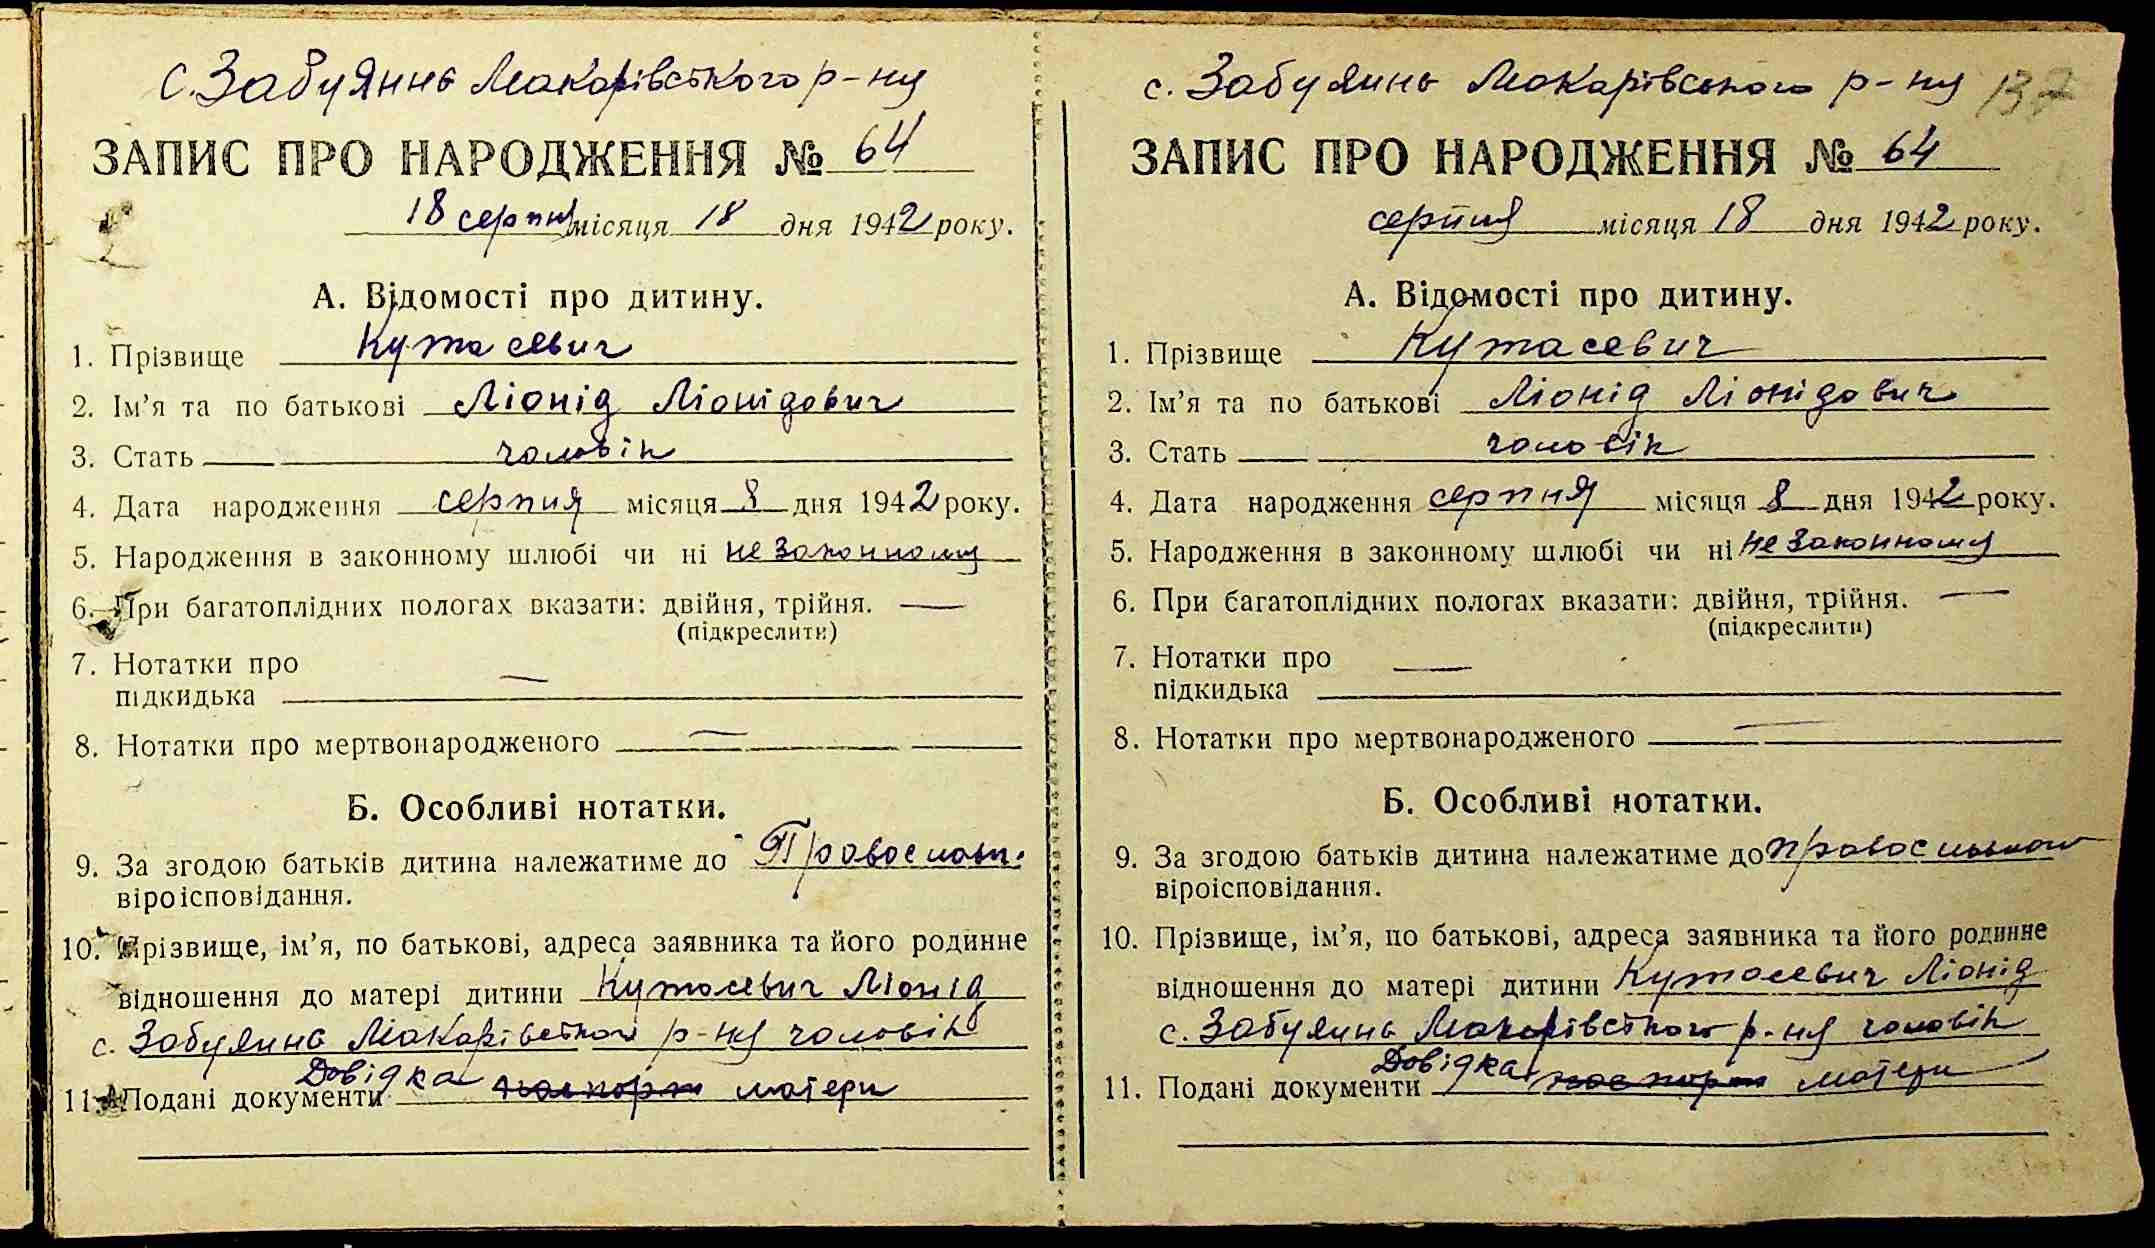 с. Забуяннь Макарівсткого р-ну
ЗАПИС ПРО НАРОДЖЕННЯ № 64
18 серпня місяця 18 дня 1942 року.
А. Відомості про дитину.
1. Прізвище Кутасевич
2. Ім'я та по батькові Ліонід Ліонідович
3. Стать чоловік
4. Дата народження серпня місяця 8 дня 1942 року.
5. Народження в законному шлюбі чи ні не законному
6. При багатоплідних пологах вказати: двійня, трійня. —
(підкреслити)
7. Нотатки про
підкидька —
8. Нотатки про мертвонародженого —
Б. Особливі нотатки.
9. За згодою батьків дитина належатиме до Православн.
віроісповідання.
10. Прізвище, ім'я, по батькові, адреса заявника та його родинне
відношення до матері дитини Кутасевич Ліонід
с. Забуяннь Макарівсткого р-ну чоловік
11. Подані документи Довідка паспорт матери
с. Забуяннь Макарівського р-ну 137
ЗАПИС ПРО НАРОДЖЕННЯ № 64
серпня місяця 18 дня 1942 року.
А. Відомості про дитину.
1. Прізвище Кутасевич
2. Ім'я та по батькові Ліонід Ліонідович
3. Стать чоловік
4. Дата народження серпня місяця 8 дня 1942 року.
5. Народження в законному шлюбі чи ні не законному
6. При багатоплідних пологах вказати: двійня, трійня. —
(підкреслити)
7. Нотатки про —
підкидька
8. Нотатки про мертвонародженого —
Б. Особливі нотатки.
9. За згодою батьків дитина належатиме до православного
віроісповідання.
10. Прізвище, ім'я, по батькові, адреса заявника та його родинне
відношення до матері дитини Кутасевич Ліонід
с. Забуяннь Макарівсткого р-ну чоловік
11. Подані документи Довідка паспорт матери